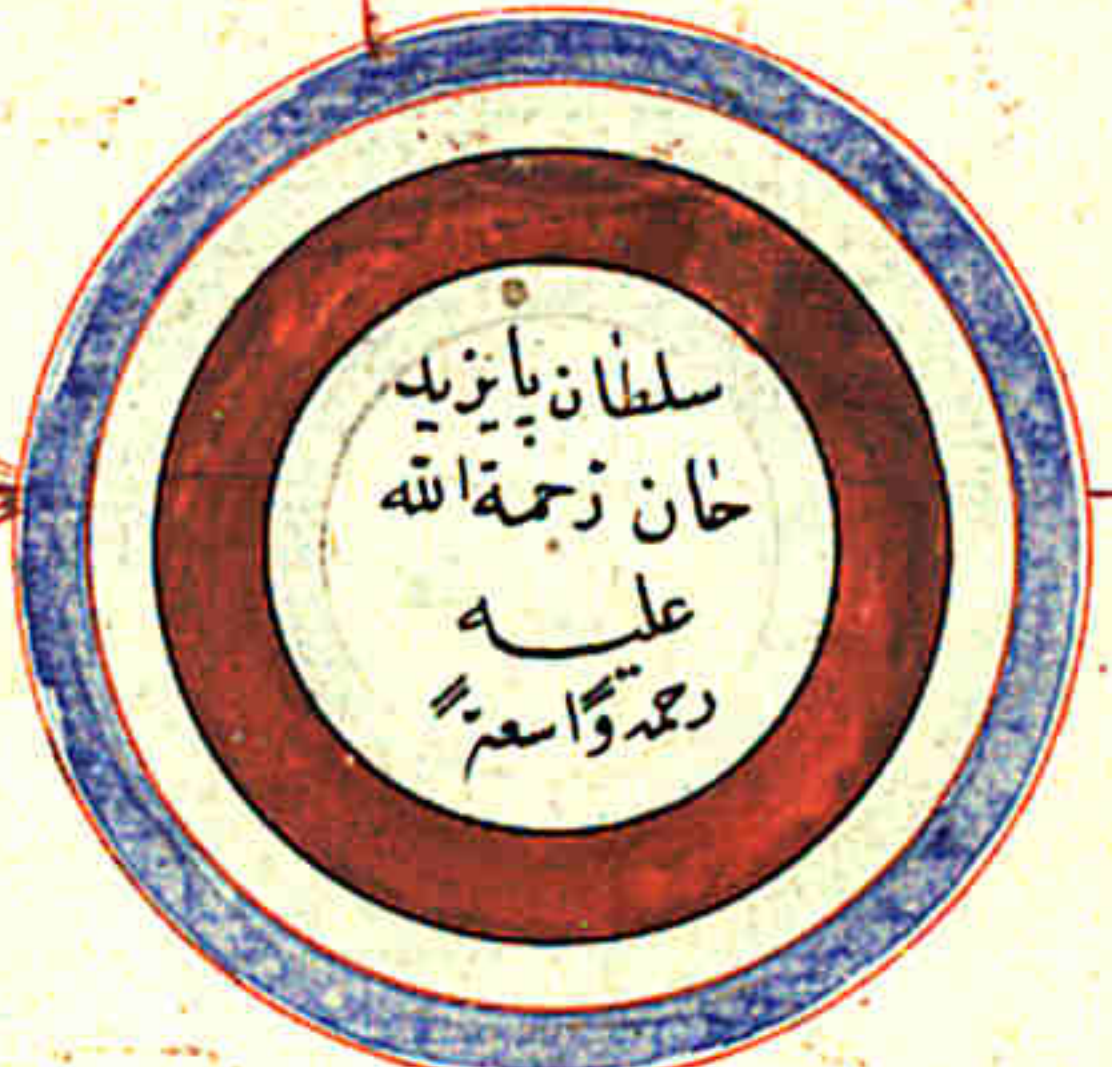 سلطان بايزيد
خان رحمة الله
عليه
رحمة واسعة